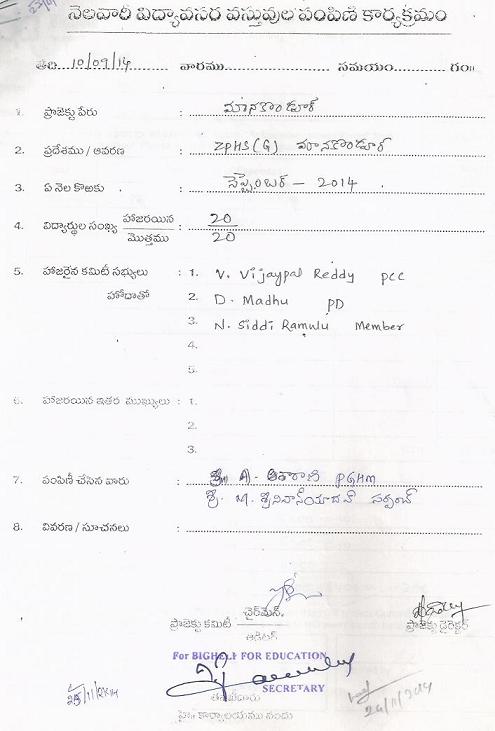 నెలవారి విద్యావసర వస్తువుల పంపిణి కార్యక్రమం
తేది. 10/09/14 వారము.................. సమయం.............. గం॥
1. ప్రాజెక్టు పేరు : మానకొండూర్
2. ప్రదేశము / ఆవరణ : ZPHS(G) మానకొండూర్
3. ఏ నెల కొఱకు : సెప్టెంబర్ - 2014
4. విద్యార్థుల సంఖ్య హాజరయిన : 20
మొత్తము 20
5. హాజరైన కమిటీ సభ్యులు : 1. V. Vijaypal Reddy PCC
హోదాతో 2. D. Madhu PD
3. N. Siddi Ramulu Member
4.
5.
6. హాజరయిన ఇతర ముఖ్యులు : 1.
2.
3.
7. పంపిణీ చేసిన వారు : శ్రీ A. ఆశారాణి PGHM
శ్రీ. M. శ్రీనివాస్ యాదవ్ సర్పంచ్
8. వివరణ / సూచనలు :
ప్రాజెక్టు కమిటీ చైర్మెన్. ప్రాజెక్టు డైరెక్టర్
ఆడిటర్
For BIGHELP FOR EDUCATION
SECRETARY
25/11/2014 24/11/2014
కార్యాలయము నందు